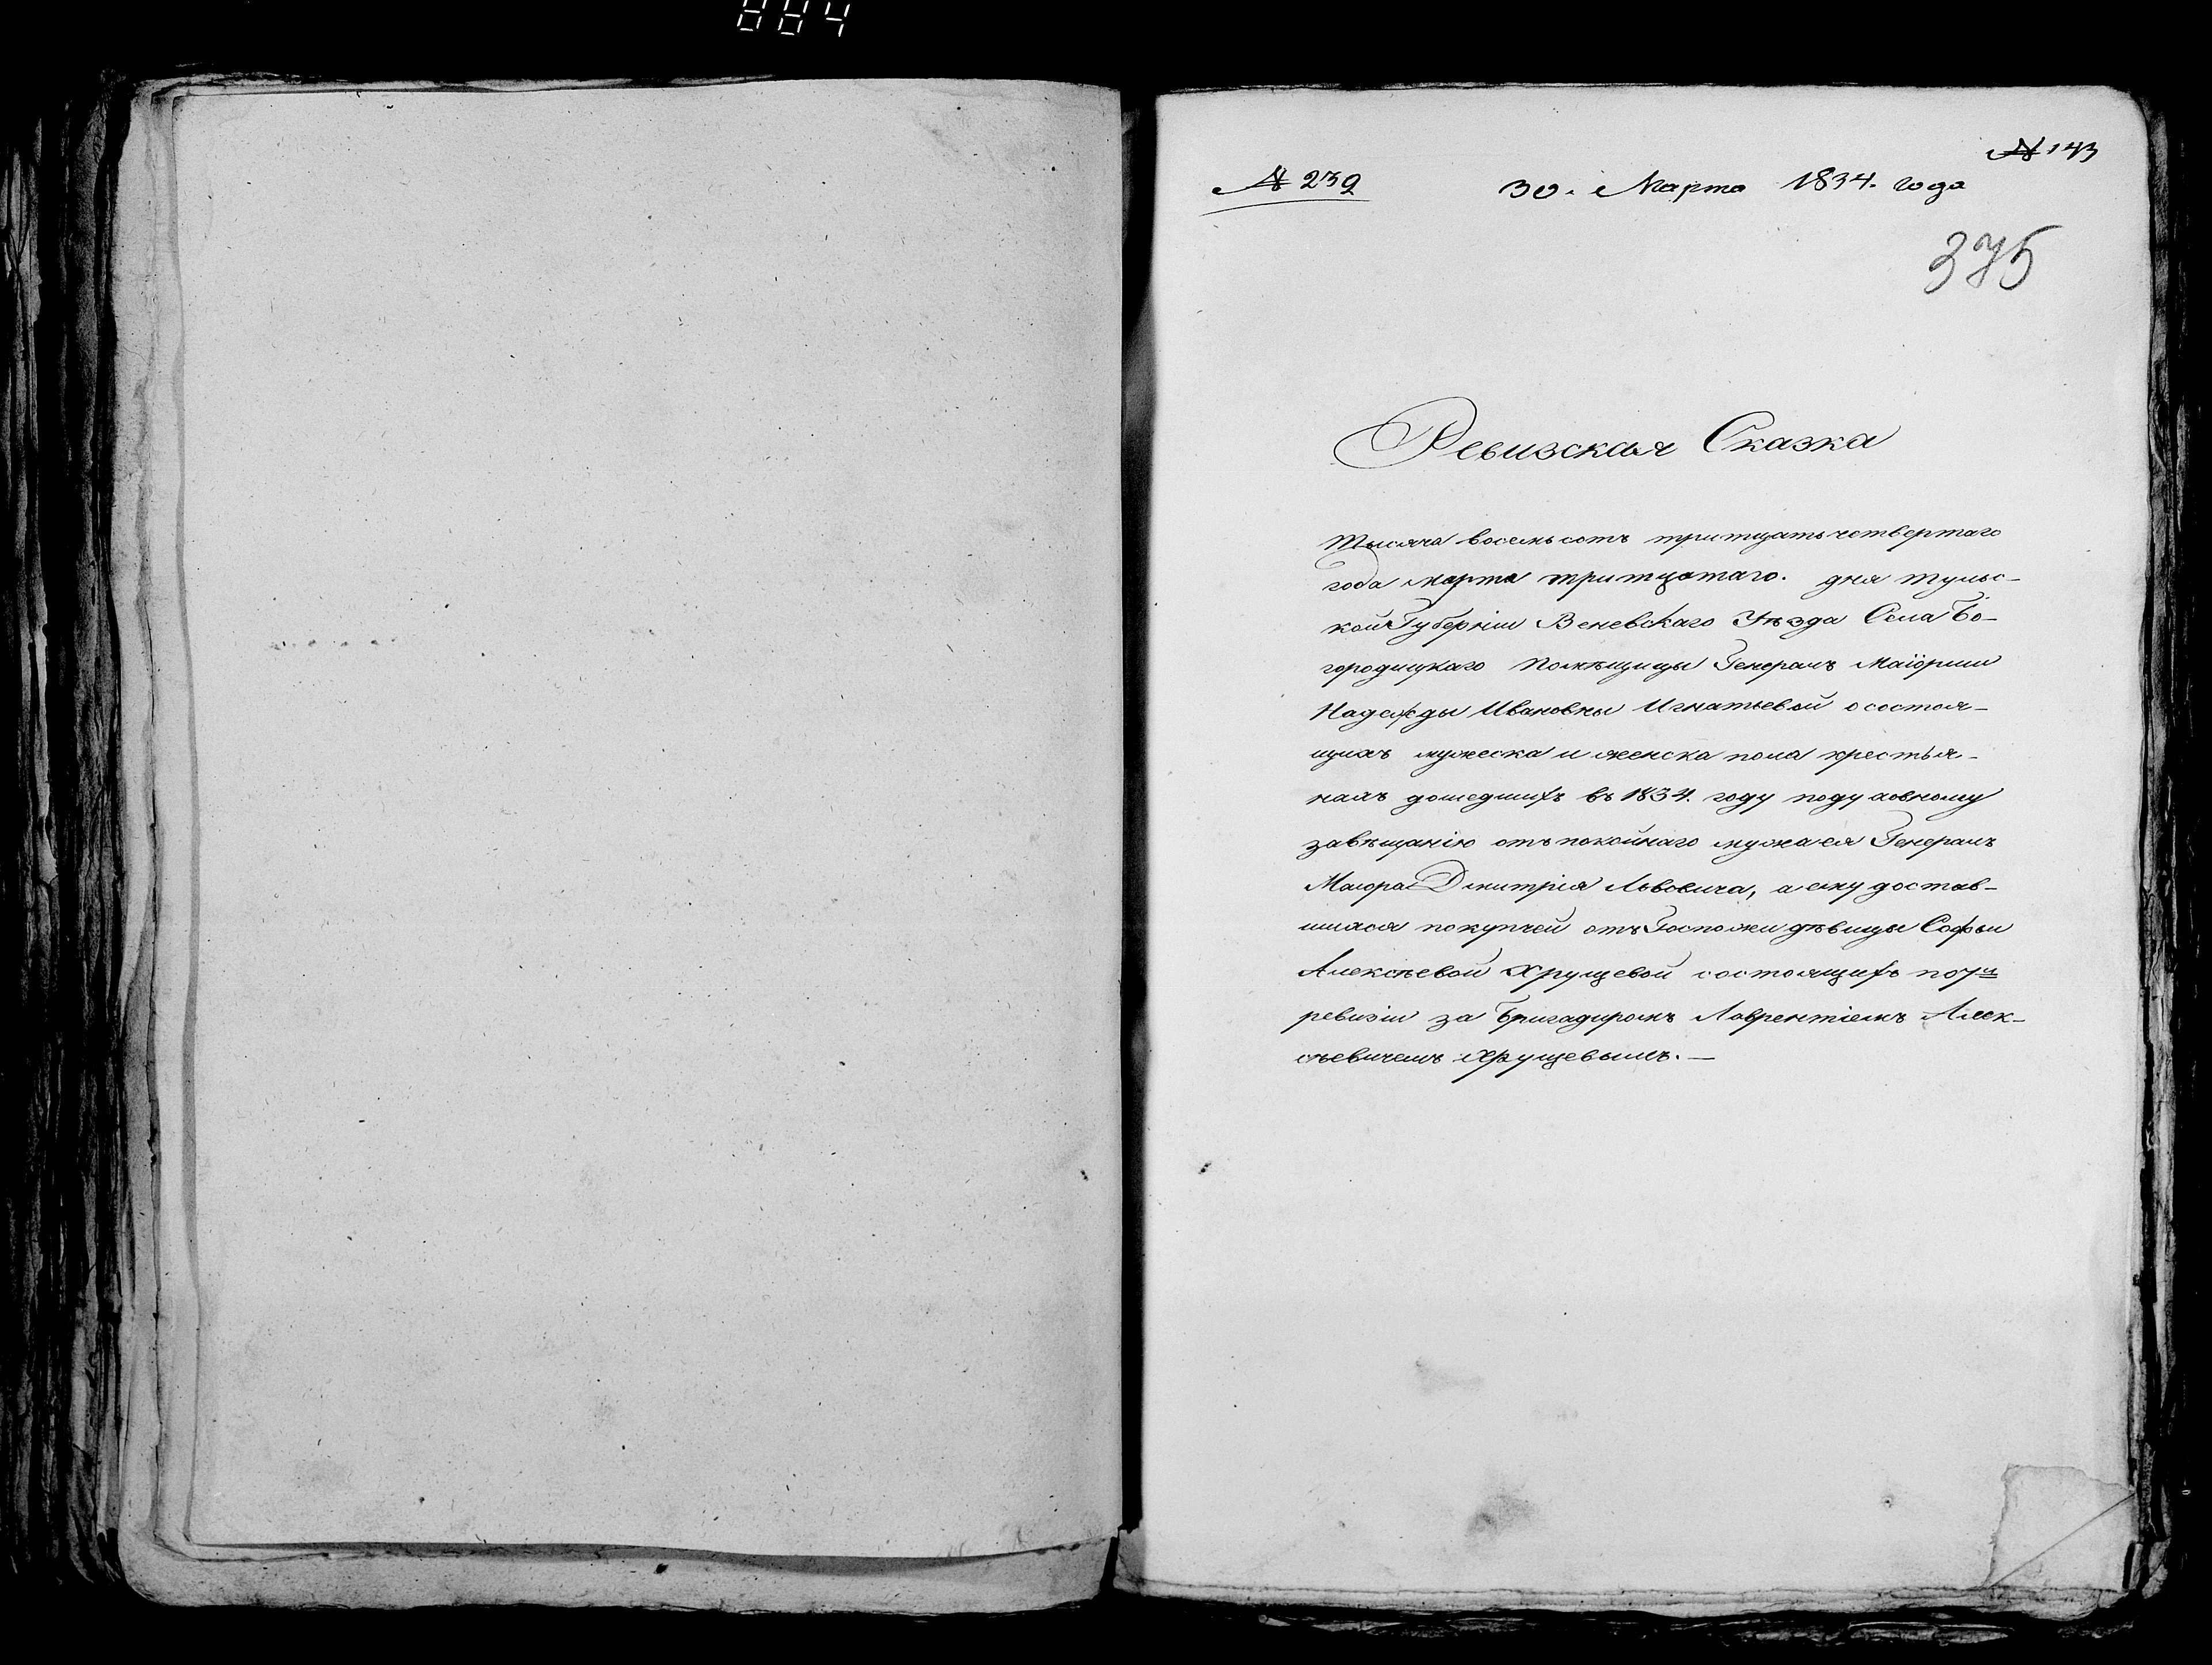 884
№ 143
№ 239 30. Марта 1834. года
375
Ревизская Сказка
Тысяча восемь сотъ тритцать четвертаго
года марта тритцатаго. дня тульс-
кой Губерніи Веневскаго Уѣзда Села Бо-
городицкаго Помѣщицы Генералъ Маіорши
Надежды Ивановны Игнатьевой о состоя-
щихъ мужеска и женска пола крестья-
нахъ дошедшихъ въ 1834. году подуховному
завѣщанію отъ покойнаго мужа ея Генералъ
Маіора Дмитрія Львовича, а ему достав-
шихся покупкей отъ Госпожи дѣвицы Софьи
Алексѣевой Хрущевой состоящихъ по 7й
ревизіи за Бригадиромъ Лаврентіемъ Алек-
сѣевичемъ Хрущевымъ. —